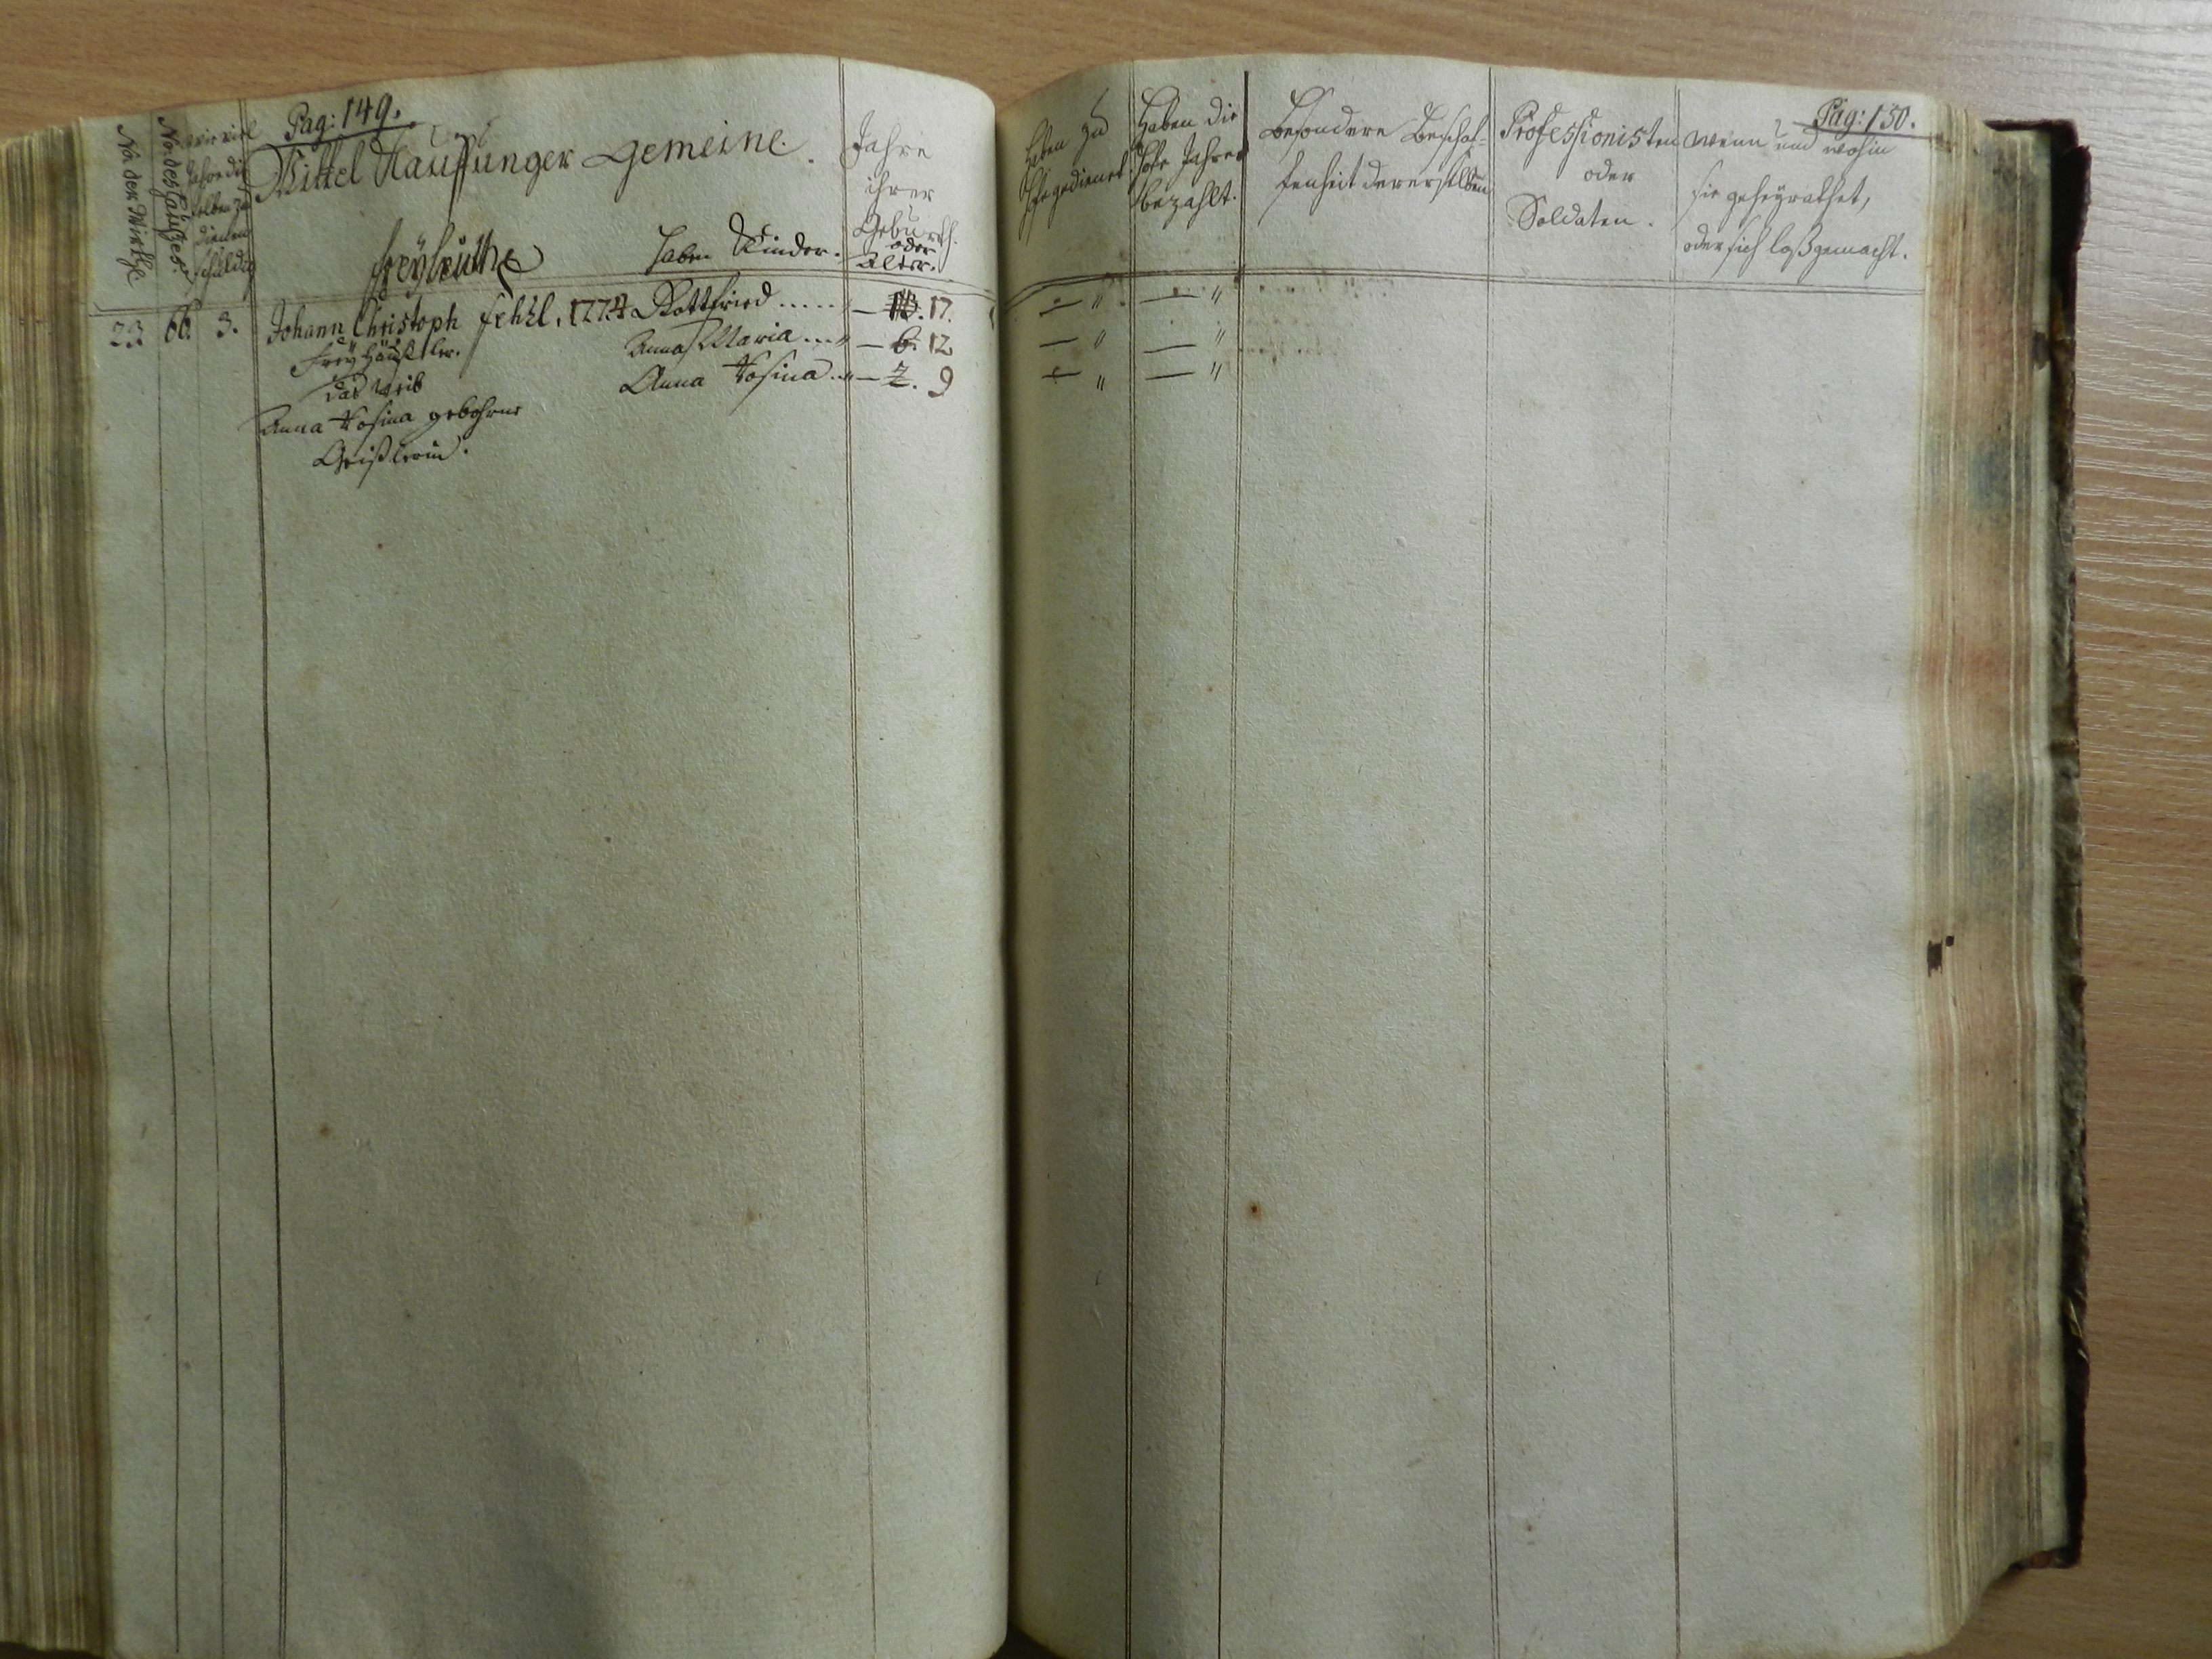 Pag: 149.
Mittel Kauffunger Gemeine.
No der Wirthe
No: des Hauses.
wie viel
Jahre die
selben zu
dienen
schuldig
Freyleuthe
haben Kinder.
Jahre
ihrer
Geburth.
oder
Alter.
23 66. 3. Johann Christoph Fehhl, 1774 Gottfried ..... " — 17.
Frey Häußler. Anna Maria ... " — 6. 12
das Weib Anna Rosina .. " — 7. 9
Anna Rosina gebohrne
Geißlerin.
Pag: 150.
haben zu
Hofe gedienet
Haben die
Hofe Jahre
bezahlt.
Besondere Beschaf-
fenheit derer selben
Professionisten
oder
Soldaten.
wenn und wohin
sie geheyrathet,
oder sich loßgemacht.
— " — "
— " — "
— " — "